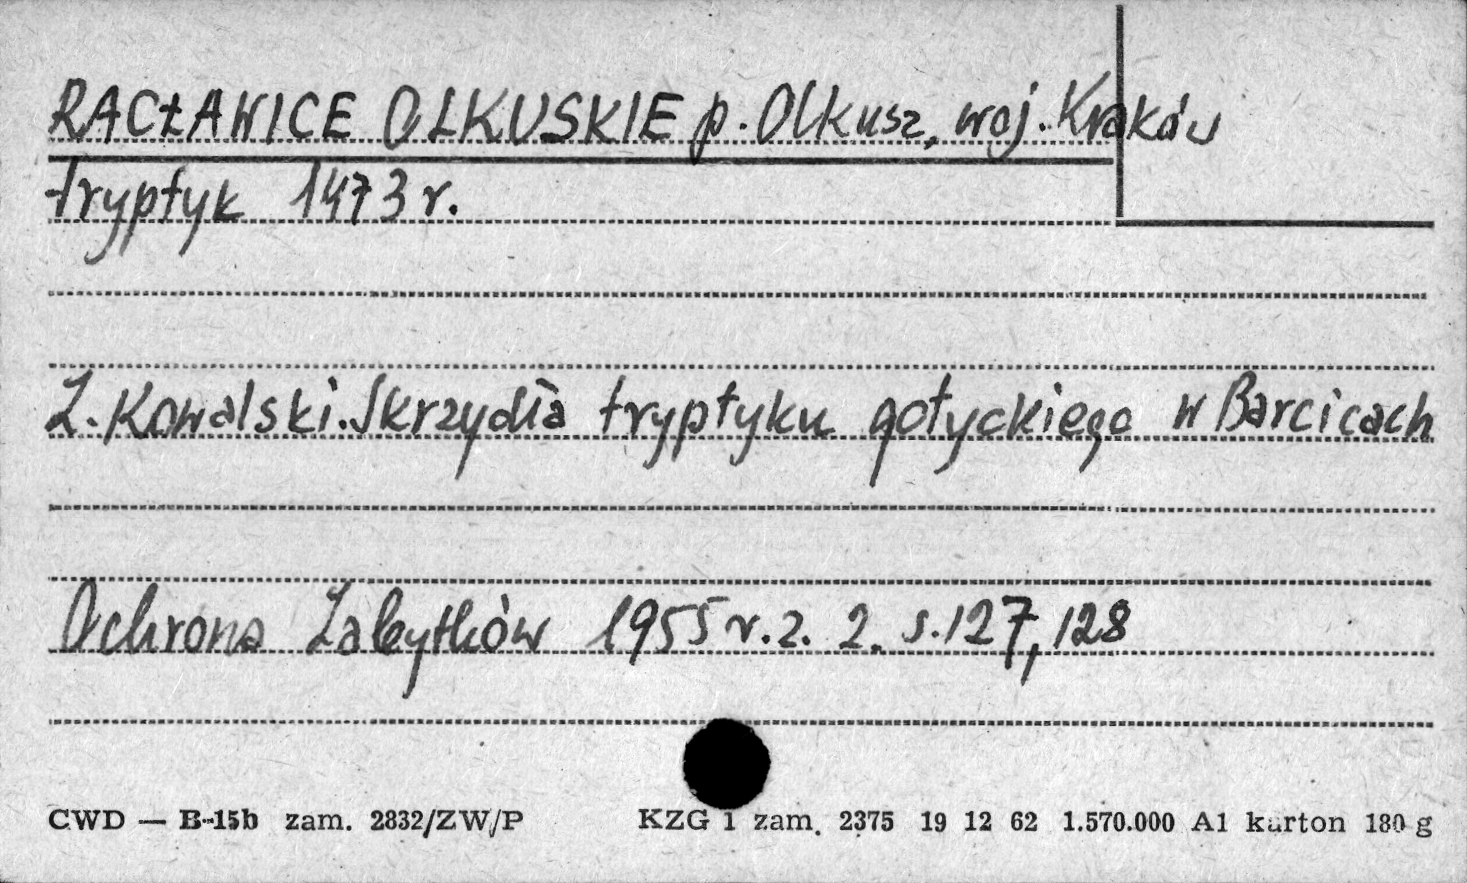 RACŁAWICE OLKUSKIE p. Olkusz, woj. Kraków
tryptyk 1473 r.
Z. Kowalski. Skrzydła tryptyku gotyckiego w Barcicach
Ochrona Zabytków 1955 r. z. 2. s. 127, 128
CWD — B-15b zam. 2832/ZW/P KZG 1 zam. 2375 19 12 62 1.570.000 A1 karton 180 g